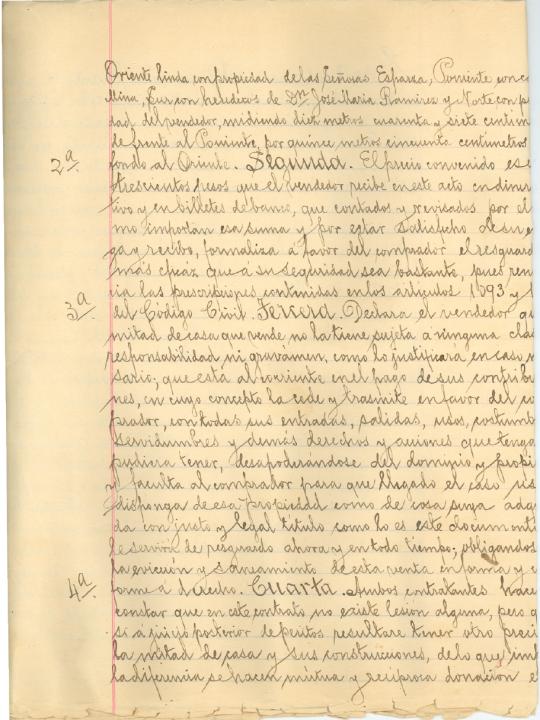 Oriente linda con propiedad de las Señoras Esparza, Poniente con c
Mina, Sur con herederos de Dn José Maria Ramirez y Norte con p
dad del vendedor, midiendo diez metros cuarenta y siete centim
de frente al Poniente, por quince metros cincuenta centimetros
fondo al Oriente. Segunda. El precio convenido es e
2ª
trescientos pesos que el vendedor recibe en este acto en din
tivo y en billetes de banco, que contados y revisados por el
mo importan esa suma y por estar satisfecho de su e
ga y recibo, formaliza á favor del comprador el resguard
mas eficaz que á su seguridad sea bastante, pues ren
cia las prescripciones contenidas en los artículos 1593 y
3ª
del Código Civil. Tercera. Declara el vendedor q
mitad de casa que vende no la tiene sujeta á ninguna clas
responsabilidad ni gravámen, como lo justificará en caso n
sario; que está al corriente en el pago de sus contribu
nes, en cuyo concepto la cede y trasmite en favor del co
prador, con todas sus entradas, salidas, usos, costumb
servidumbres y demás derechos y acciones que tenga
pudiera tener, desapoderándose del dominio y propi
y faculta al comprador para que llegado el caso us
disponga de esa propiedad como de cosa suya adq
da con justo y legal título como lo es este document
le servirá de resguardo ahora y en todo tiempo; obligándos
la evicción y saneamiento de esta venta en forma y c
4ª
forme á derecho. Cuarta. Ambos contratantes hace
constar que en este contrato no existe lesion alguna, pero q
si á juicio posterior de peritos resultare tener otro preci
la mitad de casa y sus construcciones, de lo que
la diferencia se hacen mutua y recíproca donación e